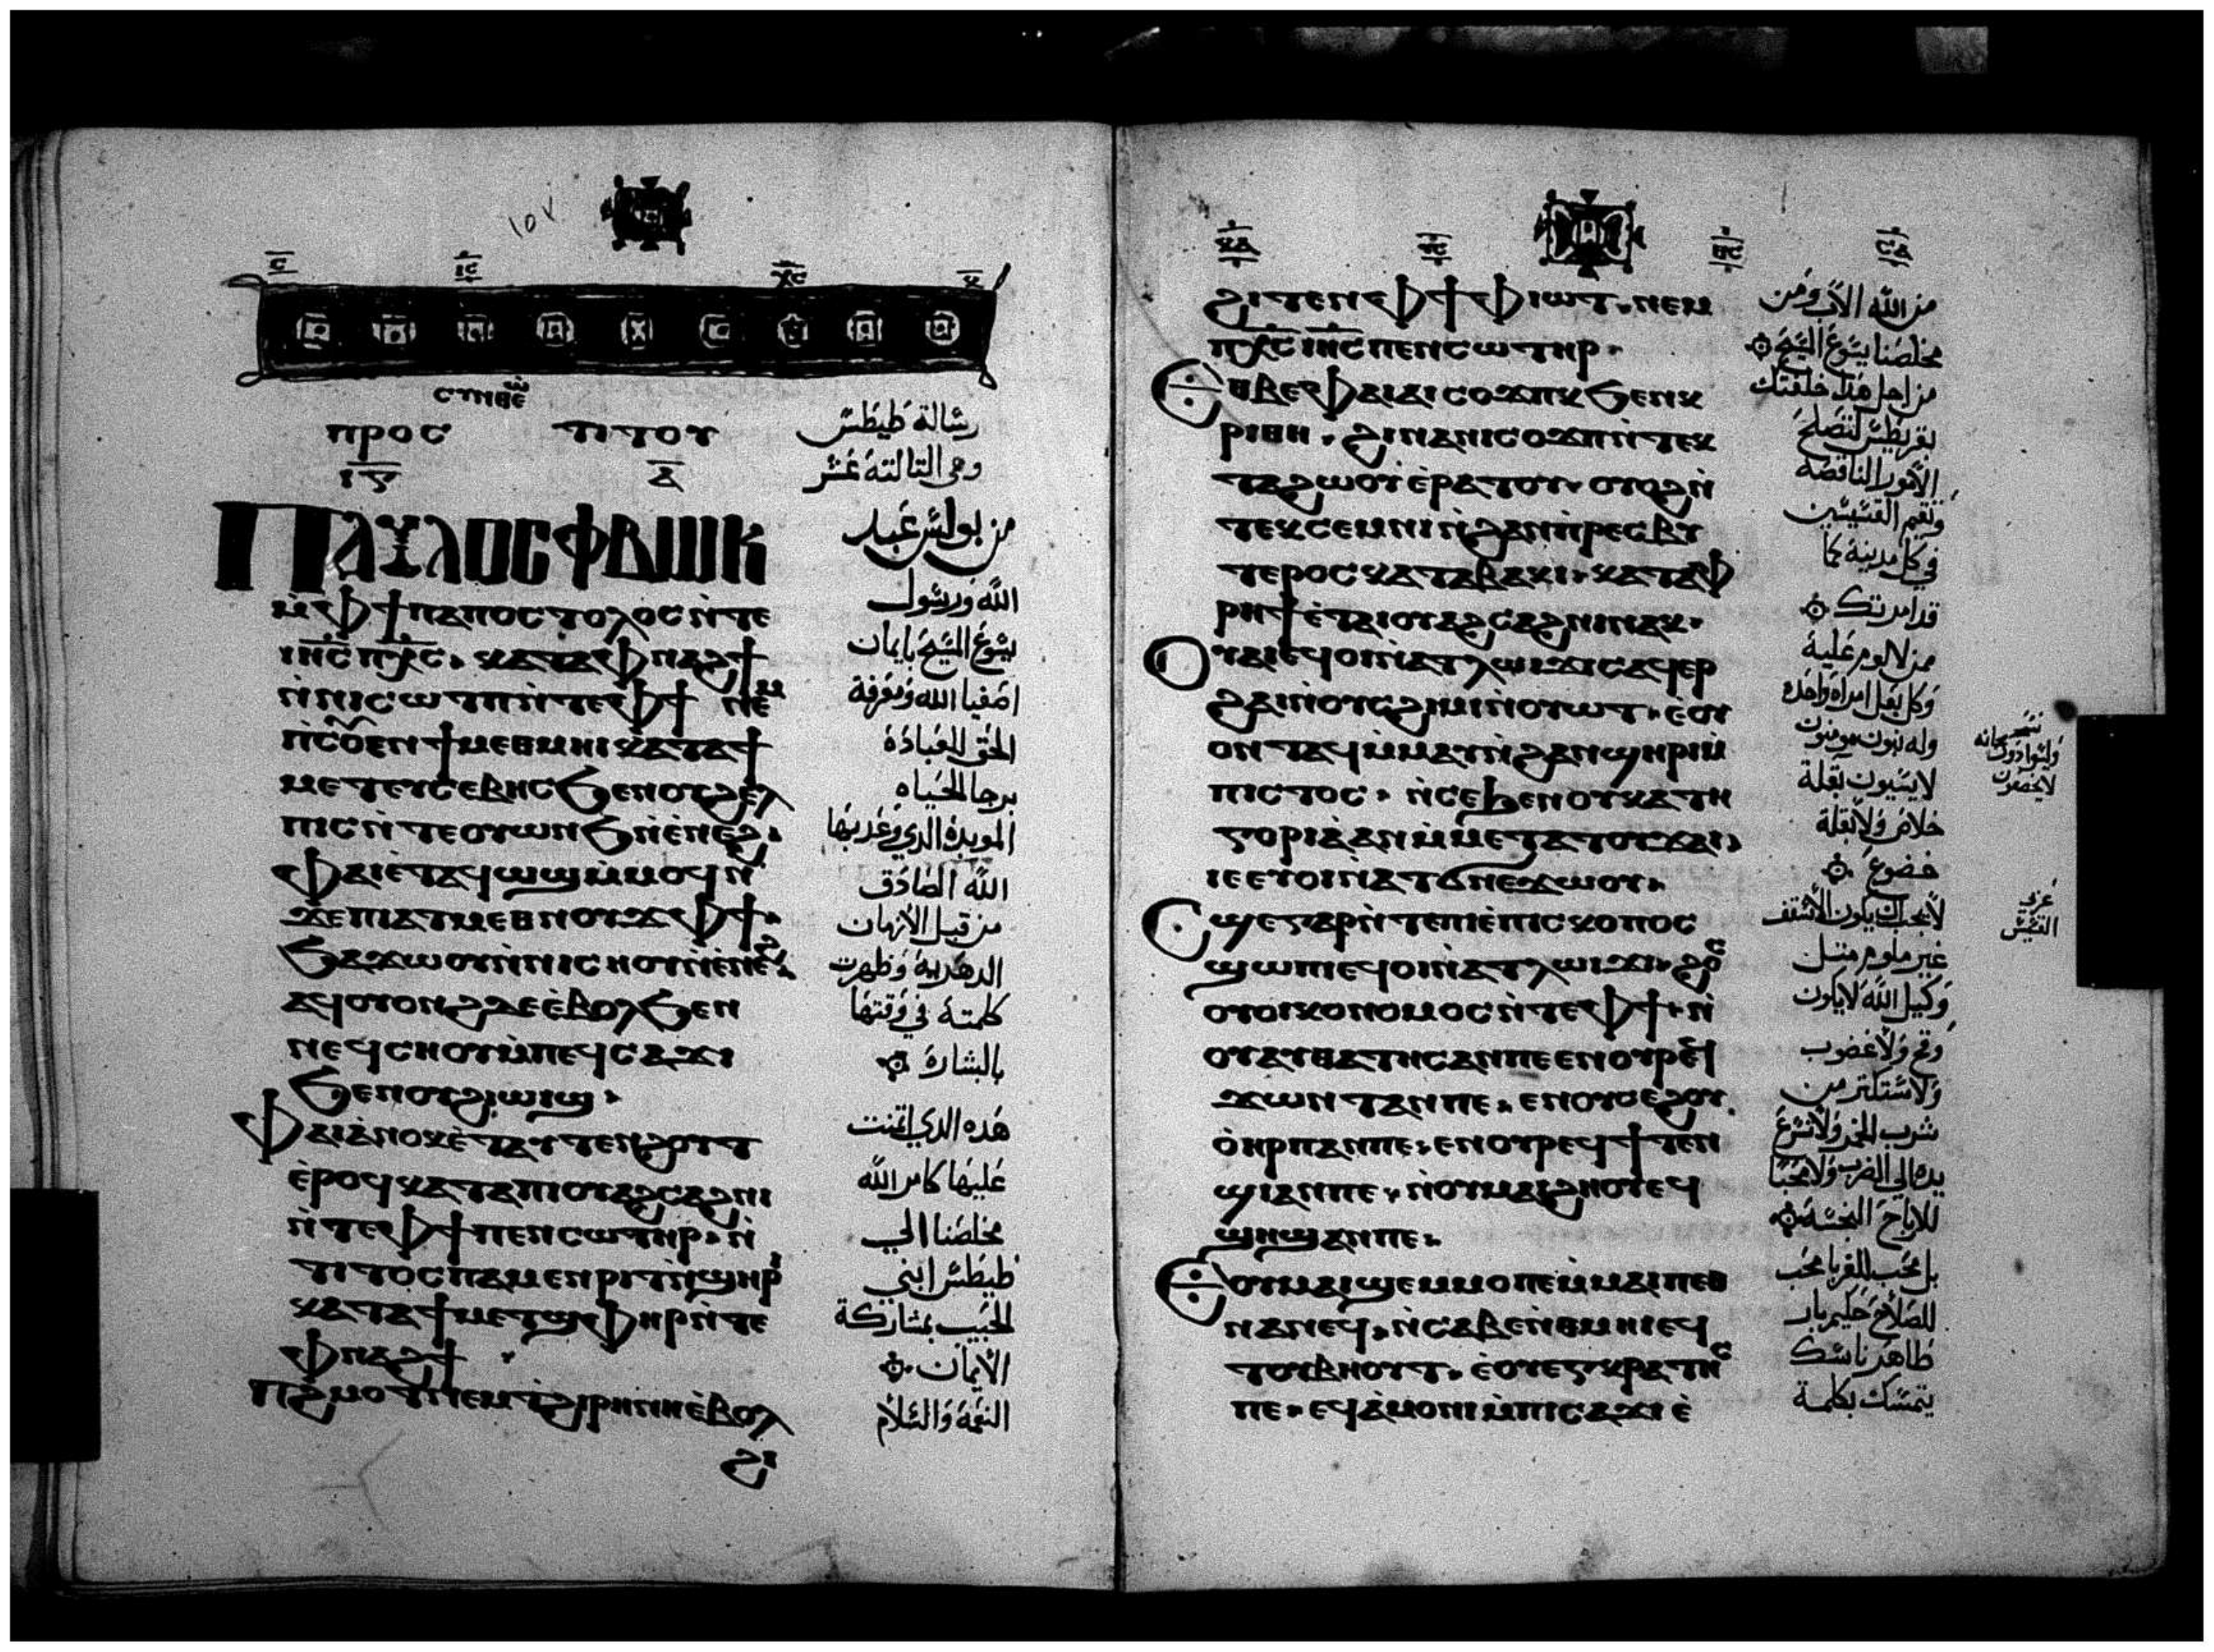 ⲡⲣⲟⲥ ⲧⲓⲧⲟⲩ
رسالة طيطس
وهى التالتة عشر
ⲡⲁⲩⲗⲟⲥ ⲫⲃⲱⲕ
ⲙ̀ⲫϯ ⲡⲁⲡⲟⲥⲧⲟⲗⲟⲥ ⲛ̀ⲧⲉ
ⲓⲏⲥ ⲡⲭⲥ. ⲕⲁⲧⲁ ⲫⲛⲁϩϯ
ⲛ̀ⲛⲓⲥⲱⲧⲡ ⲛ̀ⲧⲉ ⲫϯ ⲛⲉⲙ
ⲡⲥⲟⲩⲉⲛ ϯⲙⲉⲑⲙⲏⲓ ⲕⲁⲧⲁ ϯ
ⲙⲉⲧⲉⲩⲥⲉⲃⲏⲥ ϧⲉⲛ ⲟⲩϩⲉⲗ
ⲡⲓⲥ ⲛ̀ⲧⲉ ⲟⲩⲱⲛϧ ⲛ̀ⲉ̀ⲛⲉϩ.
ⲫⲁⲓ ⲉ̀ⲧⲁϥⲱϣ ⲙ̀ⲙⲟϥ ⲛ̀
ϫⲉ ⲡⲓⲁⲧⲙⲉⲑⲛⲟⲩϫ ⲫϯ.
ϧⲁϫⲱⲟⲩ ⲛ̀ⲛⲓⲥⲛⲟⲩ ⲛ̀ⲉ̀ⲛⲉϩ.
ⲁϥⲟⲩⲟⲛϩ ⲇⲉ ⲉ̀ⲃⲟⲗ ϧⲉⲛ
ⲛⲉϥⲥⲛⲟⲩ ⲙ̀ⲡⲉϥⲥⲁϫⲓ
ϧⲉⲛ ⲟⲩϩⲓⲱⲓϣ.
ⲫⲁⲓ ⲁ̀ⲛⲟⲕ ⲉ̀ⲧⲁⲩⲧⲉⲛϩⲟⲩⲧ
ⲉ̀ⲣⲟϥ ⲕⲁⲧⲁ ⲡⲓⲟⲩⲁϩⲥⲁϩⲛⲓ
ⲛ̀ⲧⲉ ⲫϯ ⲡⲉⲛⲥⲱⲧⲏⲣ. ⲛ̀
ⲧⲓⲧⲟⲥ ⲡⲁⲙⲉⲛⲣⲓⲧ ⲛ̀ϣⲏⲣⲓ
ⲕⲁⲧⲁ ϯⲙⲉⲧϣⲫⲏⲣ ⲛ̀ⲧⲉ
ⲫⲛⲁϩϯ.
ⲡϩ̀ⲙⲟⲧ ⲛⲉⲙ ⲧ̀ϩⲓⲣⲏⲛⲏ ⲉ̀ⲃⲟⲗ
ϩⲓ
من بولس عبد
الله ورسول
يسوع المسيح بايمان
اصفيا الله ومعرفة
الحق للعبادة
برجا الحياه
الموبدة الذي وعد بها
الله الصادق
من قبل الازمان
الدهرية وظهرت
كلمته في وقتها
بالبشارة
هذه الدي اتمنت
عليها كامر الله
مخلصنا الي
طيطس ابني
الحبيب بمشاركة
الايمان
النعمة والسلام
ϩⲓⲧⲉⲛ ⲫϯ ⲫⲓⲱⲧ. ⲛⲉⲙ
ⲡⲭⲥ ⲓⲏⲥ ⲡⲉⲛⲥⲱⲧⲏⲣ.
ⲉⲑⲃⲉ ⲫⲁⲓ ⲁⲓⲥⲟϫⲡⲕ ϧⲉⲛ ⲕ
ⲣⲓⲧⲏ. ϩⲓⲛⲁ ⲛⲓⲥⲟϫⲡ ⲛ̀ⲧⲉⲕ
ⲧⲁϩⲱⲟⲩ ⲉ̀ⲣⲁⲧⲟⲩ. ⲟⲩⲟϩ ⲛ̀
ⲧⲉⲕⲥⲉⲙⲛⲓ ⲛ̀ϩⲁⲛⲡ̀ⲣⲉⲥⲃⲩ
ⲧⲉⲣⲟⲥ ⲕⲁⲧⲁ ⲃⲁⲕⲓ. ⲕⲁⲧⲁ ⲫ
ⲣⲏϯ ⲉ̀ⲧⲁⲓⲟⲩⲁϩⲥⲁϩⲛⲓ ⲛⲁⲕ.
ⲟⲩⲁⲓ ⲉϥⲟⲓ ⲛ̀ⲁⲧⲗⲱⲓϫⲓ ⲥⲁϥⲉⲣ
ϩⲁⲓ ⲛ̀ⲟⲩⲥϩⲓⲙⲓ ⲛ̀ⲟⲩⲱⲧ. ⲉⲟⲩ
ⲟⲛⲧⲁϥ ⲙ̀ⲙⲁⲩ ⲛ̀ϩⲁⲛϣⲏⲣⲓ ⲙ̀
ⲡⲓⲥⲧⲟⲥ. ⲛ̀ⲥⲉϧⲉⲛ ⲟⲩⲕⲁⲧⲏ
ⲅⲟⲣⲓⲁ ⲁⲛ ⲙ̀ⲙⲉⲧⲁⲧⲟⲩϫⲁⲓ.
ⲓⲉ ⲉⲩⲟⲓ ⲛ̀ⲁⲧϭⲛⲉϫⲱⲟⲩ.
ⲥϣⲉ ⲅⲁⲣ ⲛ̀ⲧⲉ ⲡⲓⲉ̀ⲡⲓⲥⲕⲟⲡⲟⲥ
ϣⲱⲡⲓ ⲉϥⲟⲓ ⲛ̀ⲁⲧⲗⲱⲓϫⲓ. ϩⲱⲥ
ⲟⲩⲟⲓⲕⲟⲛⲟⲙⲟⲥ ⲛ̀ⲧⲉ ⲫϯ. ⲛ̀
ⲟⲩⲁⲩⲑⲁⲧⲏⲥ ⲁⲛ ⲡⲉ ⲉⲛⲟⲩⲣⲉϥ
ϫⲱⲛⲧ ⲁⲛ ⲡⲉ. ⲉⲛⲟⲩⲥⲉϩⲟⲩ
ⲟ̀ ⲏⲣⲡ ⲁⲛ ⲡⲉ. ⲉⲛⲟⲩⲣⲉϥϯⲧⲉⲛ
ϣⲓ ⲁⲛ ⲡⲉ. ⲛ̀ⲟⲩⲙⲁⲓϩⲏⲟⲩ ⲉϥ
ϣⲏϣ ⲁⲛ ⲡⲉ.
ⲉⲟⲩⲙⲁⲓϣⲉⲙⲙⲟ ⲡⲉ ⲙ̀ⲙⲁⲓⲡⲉⲑ
ⲛⲁⲛⲉϥ. ⲛ̀ⲥⲁⲃⲉ ⲛ̀ⲑⲙⲏⲓ ⲉϥ
ⲧⲟⲩⲃⲏⲟⲩⲧ. ⲉ̀ⲟⲩⲉⲅⲕⲣⲁⲧⲏⲥ
ⲡⲉ. ⲉϥⲁ̀ⲙⲟⲛⲓ ⲙ̀ⲡⲓⲥⲁϫⲓ ⲉ̀
من الله الاب ومن
مخلصنا يسوع المسيح
من اجل هذا خلفتك
بقريطش لتصلح
الامور الناقصة
وتقيم القسيسين
في كل مدينة كما
قد امرتك
من لا لوم عليه
وكل بعل امراه واحده
وله بنون مومنون
لا يسيون بقلة
خلاص ولا بقلة
خضوع
لانه يجب ان يكون الاسقف
غير ملوم مثل
وكيل الله لا يكون
وقح ولا غضوب
ولا مستكتر من
شرب الخمر ولا تسرع
يده الي الضرب ولا محبا
للارباح النجسة
بل محب للغربا محب
للصلاح حليم بار
طاهر ناسك
يتمسك بكلمة
القسيس